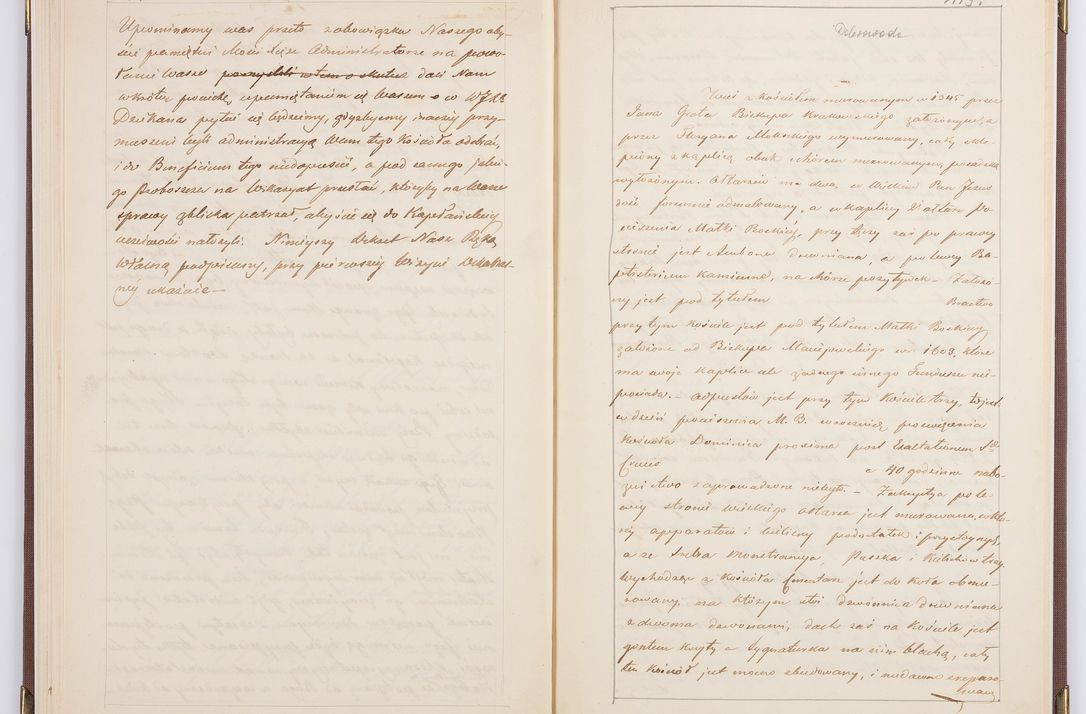 Upominamy was przeto z obowiązku Naszego aby-
ście pamiętni Mości Xięże Administratorze na powo-
łanie Wasze pomyśleli o tem o skutku dali Nam
wkrótce pociechę upamiętaniem się Waszem o co WJXa
Dziekana pytać się będziemy, gdyż byśmy inaczej przy-
muszeni byli administracyą Wam tego Kościoła odebrać,
i do Beneficium tego niedopuścić, a pod innego jakie-
go Proboszcza na Wikaryat przesłać, któryby na Wasze
sprawy zbliska patrzał, abyście się do Kapłańskiey
uczciwości nałożyli. Ninieyszy Dekret Nasz Ręką
Własną podpisany, przy pierwszey Wizycie Dekanal-
ney ukażecie —
Dobrowoda
Wieś z Kościołem murowanym w 1345 przez
Jana Grota Biskupa Krakowskiego założonym, a
przez Floryana Mokrskiego wymurowany, cały skle-
piony z kaplicą obok z chórem murowanym, posadzką
wyłożonym. Ołtarzów ma dwa, w Wielkim Pan Jezus
dość foremnie odmalowany, a w kaplicy Xtałtu Po-
cieszenia Matki Boskiey, przy tęczy zaś po prawey
stronie jest Ambona drewniana, a po lewey Ba-
ptysterium kamienne, na chórze pozytywek — Założo-
ny jest pod tytułem Bractwo
przy tym Kościele jest pod tytułem Matki Boskiey
założone od Biskupa Maciejowskiego w r. 1603, które
ma swoje kaplice ale żadnego innego Funduszu nie
posiada. — Odpustów jest przy tym Kościele trzy, to jest
w dzień pocieszenia M. B. w rocznicę poświęcenia
Kościoła Dominica proxima post Exaltationem S.
Crucis a 40 godzinne nabo-
żeństwo zaprowadzone niebyło. — Zakrystya po le-
wey stronie wielkiego ołtarza jest murowana, w któ-
rey apparatów i bielizny podostatek i przystoynych,
a ze srebra Monstrancya, Puszka i Kielichów trzy.
Wychodząc z Kościoła Cmentarz jest do koła obmu-
rowany, na którym stoi dzwonnica drewniana
z dwoma dzwonami, dach zaś na Kościele jest
gontem kryty a sygnaturka na nim blachą, cały
ten Kościół jest mocno zbudowany, i niedawno zreparo-
wany